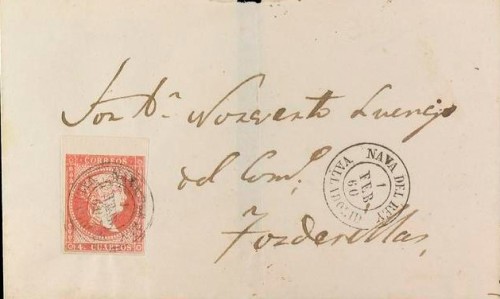 Sor Dn Norverto Luengo
del Como
Tordesillas
CORREOS
4 CUARTOS
NAVA DEL REY
1
FEB
60
VALLADOLID